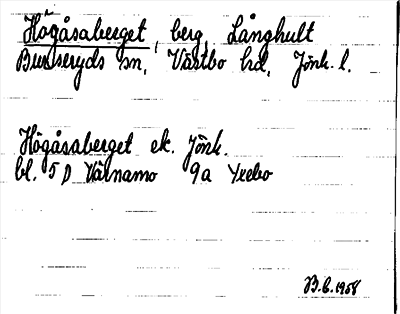 Högåsaberget, berg, Långhult
Burseryds sn, Västbo hd, Jönk. l.
Högåsaberget ek. Jönk.
bl. 5D Värnamo 9a Yxebo
B.b. 1958